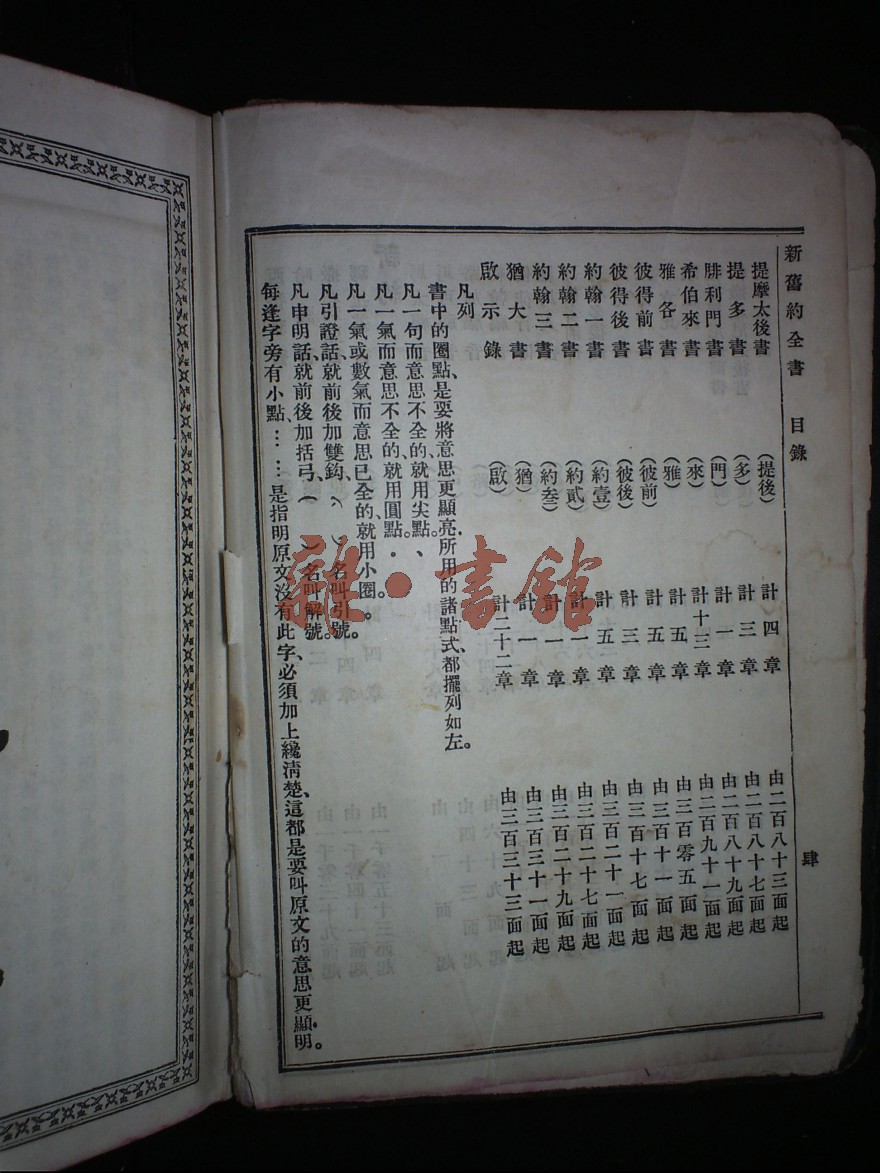 新舊約全書 目錄 肆
提摩太後書 (提後) 計四章 由二百八十三面起
提多書 (多) 計三章 由二百八十七面起
腓利門書 (門) 計一章 由二百八十九面起
希伯來書 (來) 計十三章 由二百九十一面起
雅各書 (雅) 計五章 由三百零五面起
彼得前書 (彼前) 計五章 由三百十一面起
彼得後書 (彼後) 計三章 由三百十七面起
約翰一書 (約壹) 計五章 由三百二十一面起
約翰二書 (約貳) 計一章 由三百二十七面起
約翰三書 (約叁) 計一章 由三百二十九面起
猶大書 (猶) 計一章 由三百三十一面起
啟示錄 (啟) 計二十二章 由三百三十三面起
凡列
書中的圈點、是要將意思更顯亮所用的諸點式、都擺列如左。
凡一句而意思不全的、就用尖點。、
凡一氣而意思不全的、就用圓點。．
凡一氣或數氣而意思已全的、就用小圈。。
凡引證話、就前後加雙鈎、〈 〉名叫引號。
凡申明話、就前後加括弓、( )名叫解號。
每逢字旁有小點、……是指明原文沒有此字、必須加上纔清楚、這都是要叫原文的意思更顯明。
雜·書館